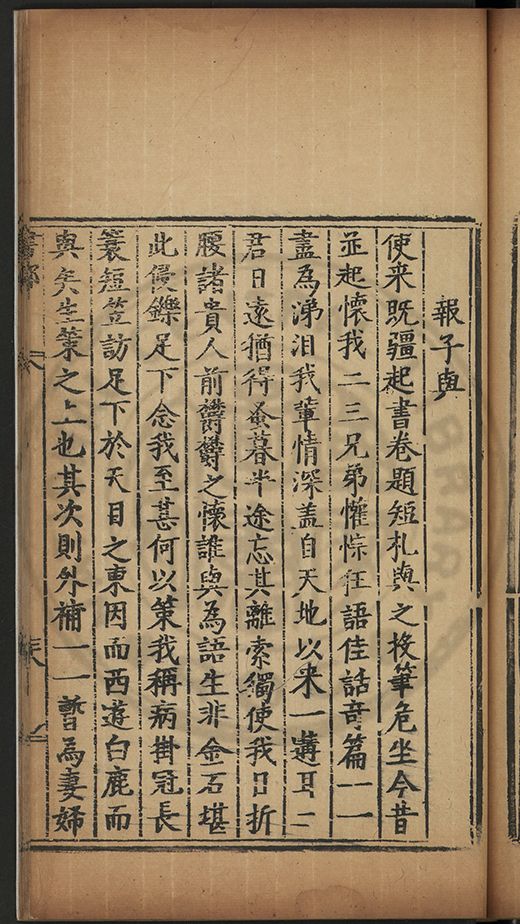 報子與
使来既疆起書卷題短札與之投筆危坐今昔
並起懷我二三兄弟懽悰狂語佳話奇篇一一
盡為涕泪我輩情深盖自天地以来一遘耳二
君日遠猶得蚤暮半途忘其離索獨使我日折
腰諸貴人前欝欝之懷誰與為語生非金石堪
此侵鑠足下念我至甚何以策我稱病掛冠長
蓑短笠訪足下於天目之東因而西遊白鹿而
與矣生策之上也其次則外補一一暫為妻婦